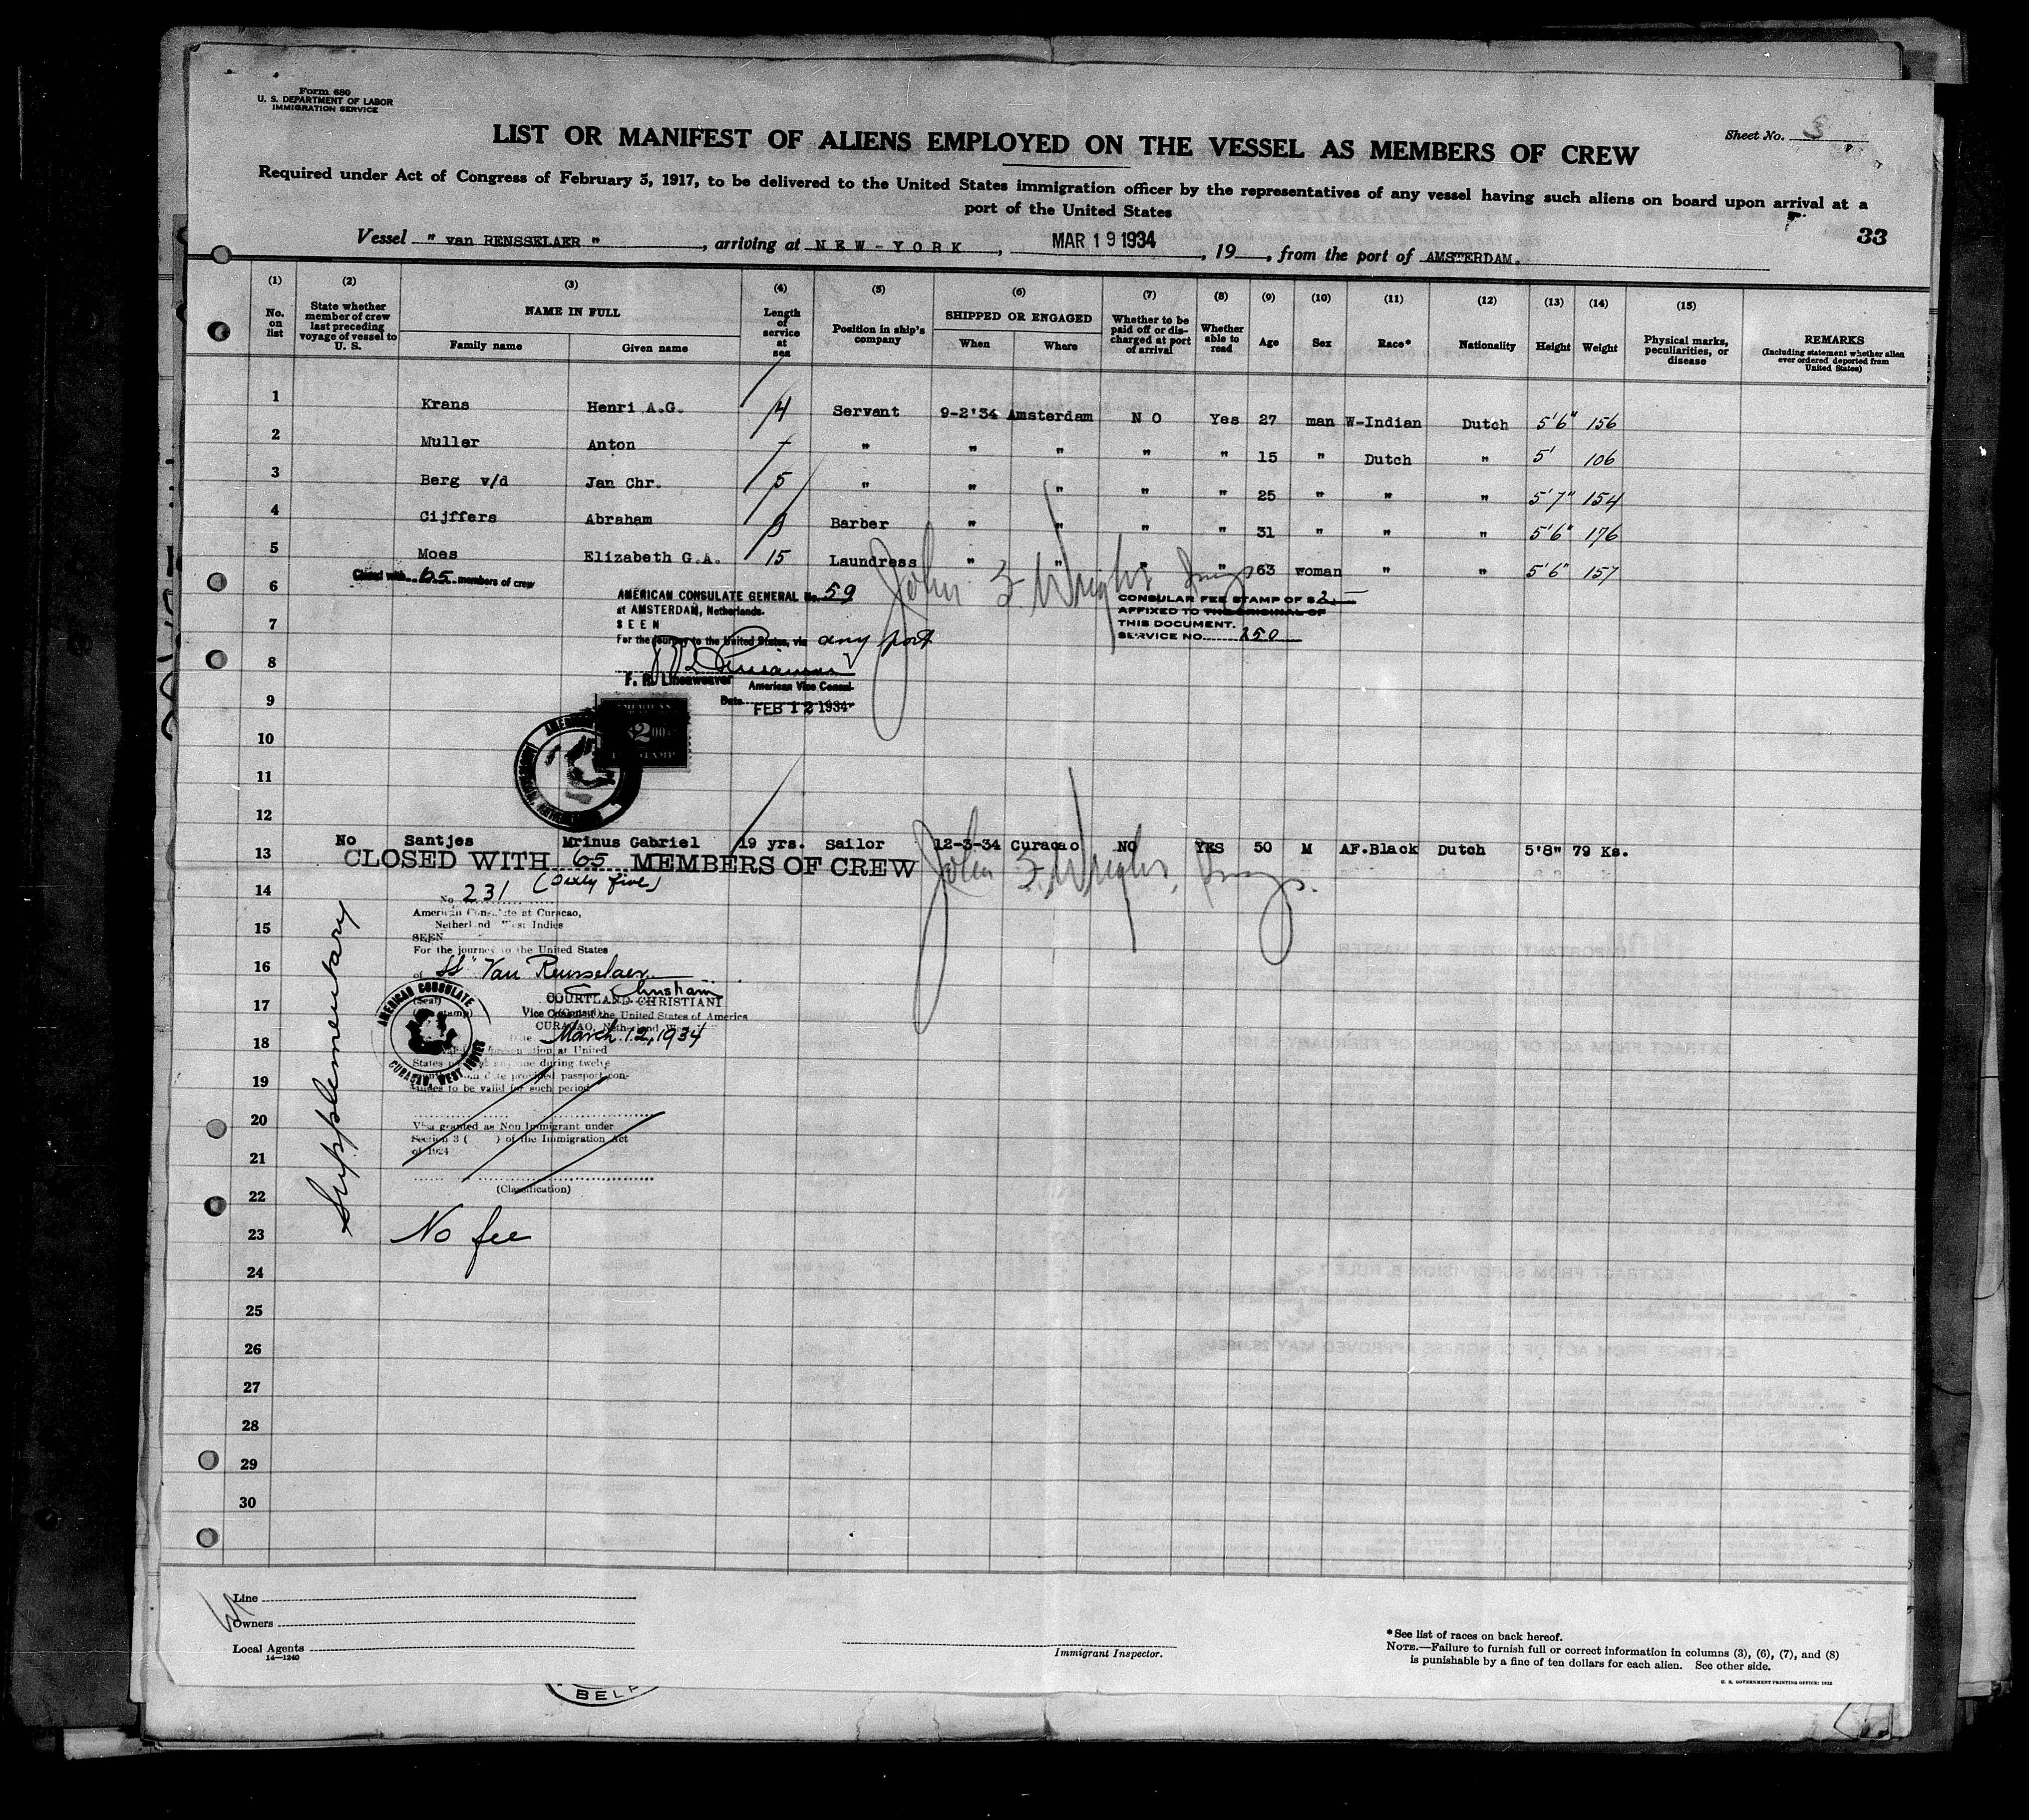 Form 680
U. S. DEPARTMENT OF LABOR
IMMIGRATION SERVICE
Sheet No. 3
LIST OR MANIFEST OF ALIENS EMPLOYED ON THE VESSEL AS MEMBERS OF CREW
Required under Act of Congress of February 5, 1917, to be delivered to the United States immigration officer by the representatives of any vessel having such aliens on board upon arrival at a
port of the United States
33
Vessel " van RENSSELAER ", arriving at NEW-YORK, MAR 19 1934, 19, from the port of AMSTERDAM.
(1) (2) (3) (4) (5) (6) (7) (8) (9) (10) (11) (12) (13) (14) (15)
No. on list State whether member of crew last preceding voyage of vessel to U. S. NAME IN FULL Family name Given name Length of service at sea Position in ship's company SHIPPED OR ENGAGED When Where Whether to be paid off or discharged at port of arrival Whether able to read Age Sex Race* Nationality Height Weight Physical marks, peculiarities, or disease REMARKS (Including statement whether alien ever ordered deported from United States)
1 Krans Henri A.G. 4 Servant 9-2'34 Amsterdam N O Yes 27 man W-Indian Dutch 5'6" 156
2 Muller Anton - " " " " " 15 " Dutch " 5' 106
3 Berg v/d Jan Chr. 5 " " " " " 25 " " " 5'7" 154
4 Cijffers Abraham 9 Barber " " " " 31 " " " 5'6" 176
5 Moes Elizabeth G.A. 15 Laundress " " " " 63 woman " " 5'6" 157
Closed with 65 members of crew
John F. Wright, Insp.
6
AMERICAN CONSULATE GENERAL No. 59
at AMSTERDAM, Netherlands.
SEEN
For the journey to the United States, via any port
F. R. Lineaweaver
American Vice Consul.
Date FEB 12 1934
CONSULAR FEE STAMP OF $2.—
AFFIXED TO THE ORIGINAL OF
THIS DOCUMENT.
SERVICE NO. 250
7
8
9
10
11
12
No Santjes Mrinus Gabriel 19 yrs. Sailor 12-3-34 Curaçao NO YES 50 M AF.Black Dutch 5'8" 79 Ks.
13 CLOSED WITH 65 MEMBERS OF CREW
(Sixty five)
John F. Wright, Insp.
14
No 231
American Consulate at Curacao,
Netherland West Indies
15
SEEN
For the journey to the United States
16
of SS "Van Rensselaer
C Christiani
COURTLAND CHRISTIANI
17
(Seal)
AMERICAN CONSULATE
CURACAO, WEST INDIES
Vice Consul of the United States of America
CURACAO, Netherland West
March 12, 1934
18
at United
States at any time during twelve
provided passport con-
19
tinues to be valid for such period
20
Visa granted as Non Immigrant under
Section 3 ( ) of the Immigration Act
of 1924
21
(Classification)
22
Supplementary
No fee
23
24
25
26
27
28
29
30
Line
Owners
Local Agents
14—1240
Immigrant Inspector.
*See list of races on back hereof.
NOTE.—Failure to furnish full or correct information in columns (3), (6), (7), and (8)
is punishable by a fine of ten dollars for each alien. See other side.
U. S. GOVERNMENT PRINTING OFFICE: 1932
BELF